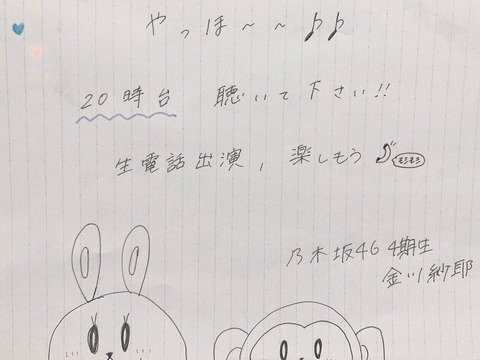 やっほ〜〜♪♪
20時台 聴いて下さい!!
生電話出演, 楽しもう
乃木坂46 4期生
金川紗耶